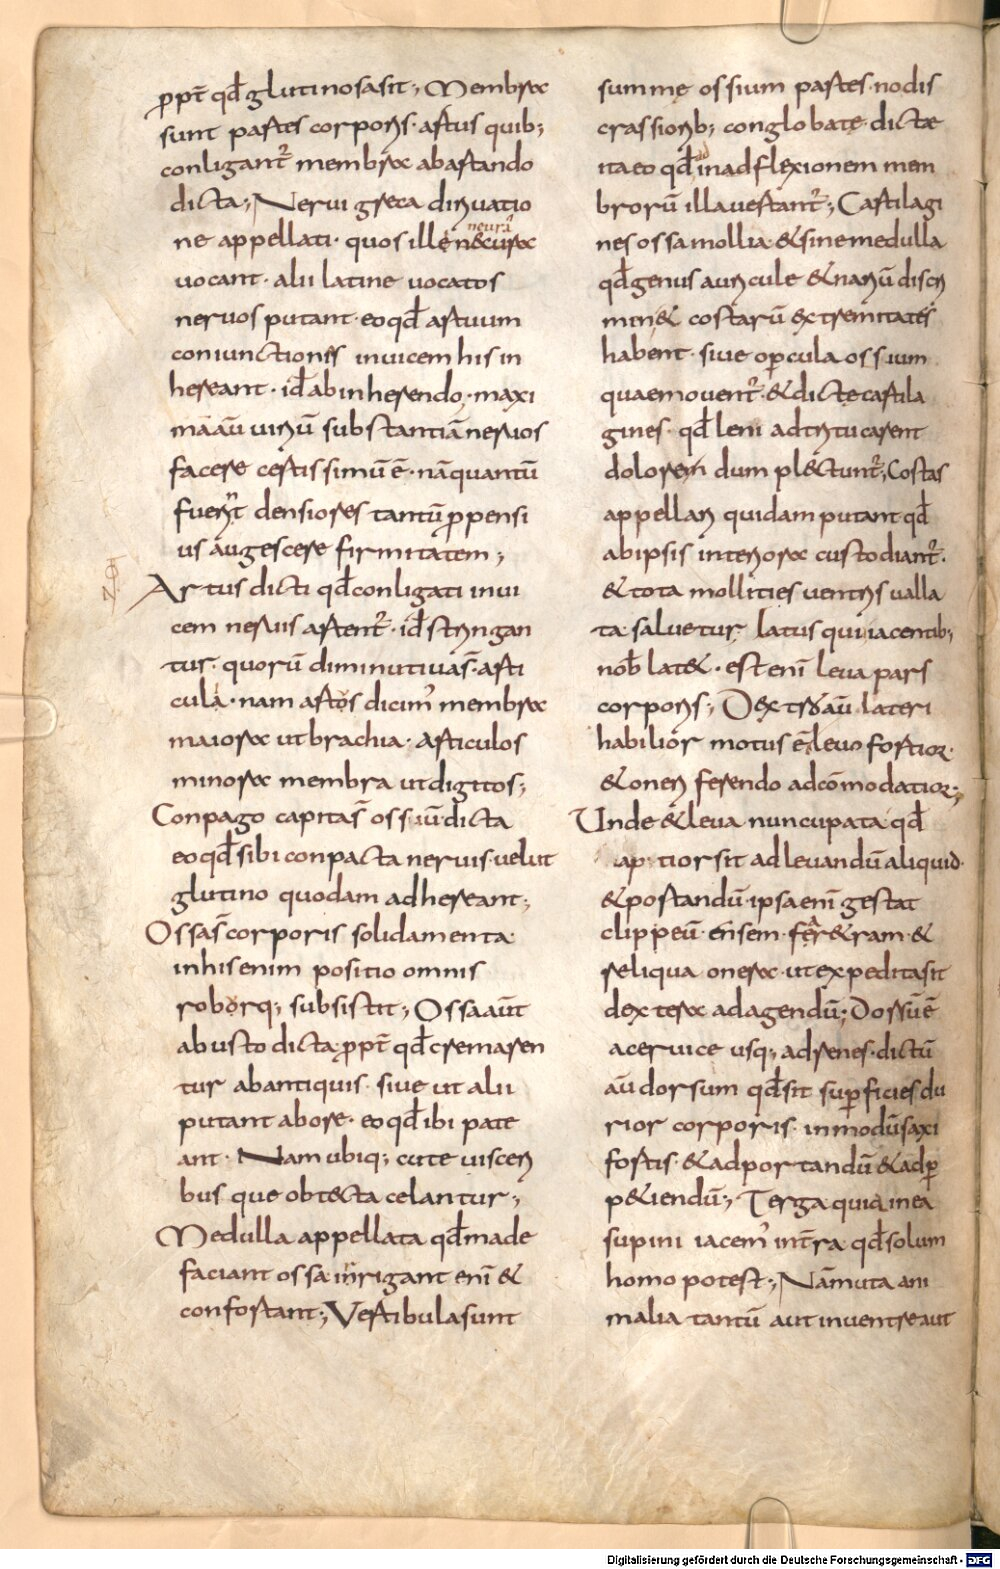 ꝓpt̄ qđ glutinosa sit; Membra
sunt partes corporis· artus quib;
conligant᷑ membra ab artando
dicta; Nervi greca dirivatio
neurā
ne appellati· quos ille
uocant· alii latine uocatos
neruos putant· eo qđ artuum
coniunctiones invicem his in
hereant· id̄ ab inherendo· maxi
mā aū uiriū substantiā neruos
facere certissimū ē· nā quantū
fuerīt densiores tantū ꝓpensi
us augescere firmitatem;
Artus dicti qđ conligati inui
cem neruis artent᷑· id̄ stringan
tur· quorū diminutiua s̄· arti
cula· nam artos dicim᾽ membra
maiora ut brachia· articulos
minora membra ut digitos;
Conpago capita s̄ ossiū· dicta
eo qđ sibi conpacta neruis· velut
glutino quodam adhereant;
Ossa s̄ corporis solidamenta·
in his enim positio omnis
roborq; subsistit; Ossa aūt
ab usto dicta ꝓpt̄ qđ cremaren
tur ab antiquis· siue ut alii
putant ab ore· eo qđ ibi pate
ant· Nam ubiq; cute uisceri
bus que obtecta celantur;
Medulla appellata qđ made
faciant ossa inrigant enī &
confortant; Vertibula sunt
summę ossium partes· nodis
crassiorib; conglobate· dictæ
ita eo qđ in ad flexionem mem
brorū illa uertant᷑; Cartilagi
nes ossa mollia· & sine medulla
qđ genus auricule & nariū discri
min& costarū extremitates
habent· siue opcula ossium
quae mouent᷑· & dictę cartila
gines· qđ leni adtritu carent
dolorem dum plectunt᷑; Costas
appellari quidam putant qđ
ab ipsis interiora custodiant᷑·
& tota mollities uentris ualla
ta saluetur Latus qui iacentib;
nob̄ late&· est enī leua pars
corporis; Dextro aū lateri
habilior motus ē· levo fortior·
& oneri ferendo adcōmodatior;
Unde & leua nuncupata qđ
aptior sit ad levandū aliquid·
& portandū· ipsa enī gestat
clippeū· ensem· far&ram· &
reliqua onera· ut expedita sit
dextera ad agendū; Dossū ē
a cervice usq; ad renes· dictū
aū dorsum qđ sit supficies du
rior corporis· in modū saxi
fortis· & ad portandū & ad ꝑ
p&iendū; Terga quia in ea
supini iacem᾽ in t̄ra qđ solum
homo potest; Nā muta ani
malia tantū aut in uentre aut
Digitalisierung gefördert durch die Deutsche Forschungsgemeinschaft - DFG